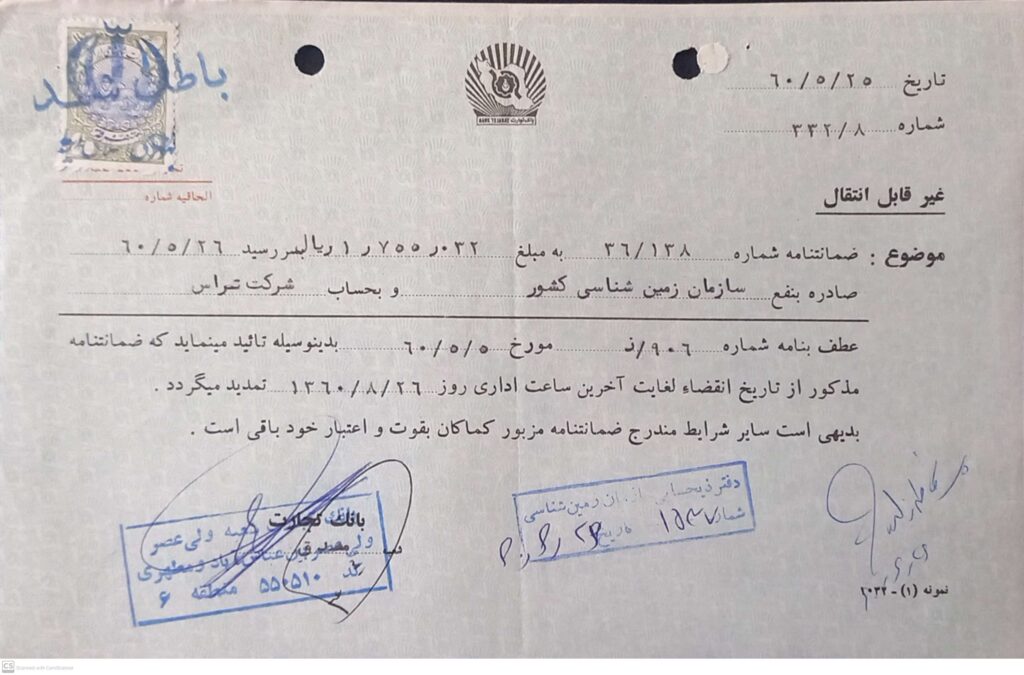 باطل شد
BANK TEJARAT
تاریخ ۶۰/۵/۲۵
شماره ۳۳۲/۸
الحاقیه شماره
غیر قابل انتقال
موضوع : ضمانتنامه شماره ۳۶/۱۳۸ به مبلغ ۰۳۲ر۷۵۵ر۱ ریال سررسید ۶۰/۵/۲۶
صادره بنفع سازمان زمین شناسی کشور و بحساب شرکت تمراس
عطف بنامه شماره ۹۰۶/ز مورخ ۶۰/۵/۵ بدینوسیله تائید مینماید که ضمانتنامه
مذکور از تاریخ انقضاء لغایت آخرین ساعت اداری روز ۱۳۶۰/۸/۲۶ تمدید میگردد .
بدیهی است سایر شرایط مندرج ضمانتنامه مزبور کماکان بقوت و اعتبار خود باقی است .
بانک تجارت
شعبه ولی عصر
کد ۵۵۰۵۱۰ منطقه ۶
دفتر ذیحسابی سازمان زمین شناسی
شماره
تاریخ
نمونه (۱) - ۲۰۳۲
Scanned with CamScanner